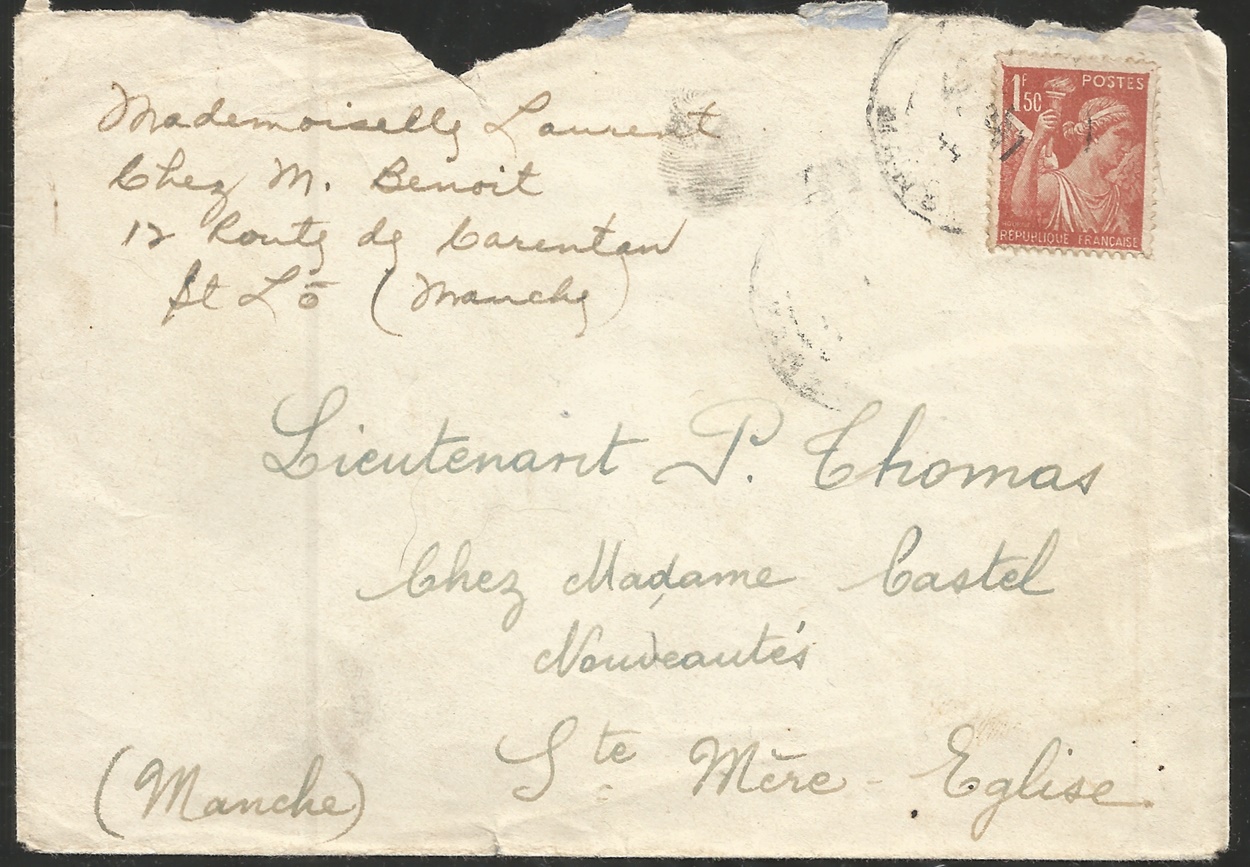 Mademoiselle Laurent
Chez M. Benoit
12 Route de Carentan
St Lô (Manche)
1F50 POSTES
RÉPUBLIQUE FRANÇAISE
Lieutenant P. Thomas
Chez Madame Castel
Nouveautés
Ste Mère-Eglise
(Manche)